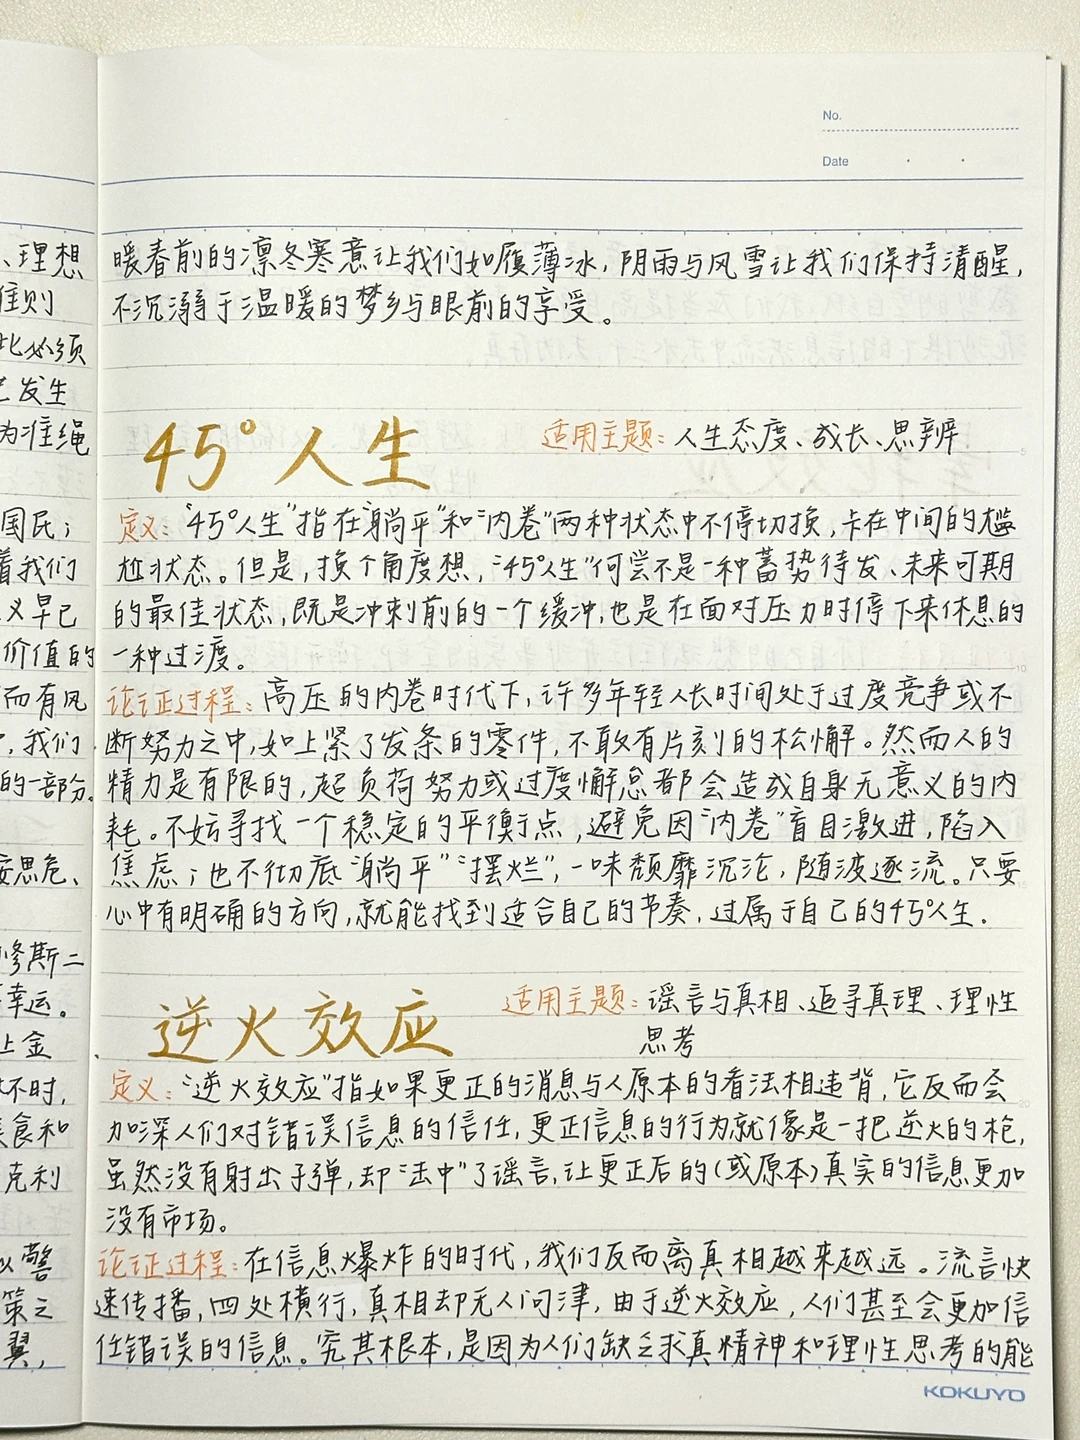 No.
Date
、理想
准则
此必须
已发生
为准绳
国民；
着我们
义早已
价值的
而有风
，我们
的一部分。
安思危、
修斯二
幸运。
上金
不时，
食和
克利
以警
策之
翼，
暖春前的凛冬寒意让我们如履薄冰，阴雨与风雪让我们保持清醒，
不沉溺于温暖的梦乡与眼前的享受。
45°人生 适用主题：人生态度、成长、思辨
定义：“45°人生”指在“躺平”和“内卷”两种状态中不停切换，卡在中间的尴
尬状态。但是，换个角度想，“45°人生”何尝不是一种蓄势待发、未来可期
的最佳状态，既是冲刺前的一个缓冲，也是在面对压力时停下来休息的
一种过渡。
论证过程：高压的内卷时代下，许多年轻人长时间处于过度竞争或不
断努力之中，如上紧了发条的零件，不敢有片刻的松懈。然而人的
精力是有限的，超负荷努力或过度懈怠都会造成自身无意义的内
耗。不妨寻找一个稳定的平衡点，避免因“内卷”盲目激进，陷入
焦虑；也不彻底“躺平”“摆烂”，一味颓靡沉沦，随波逐流。只要
心中有明确的方向，就能找到适合自己的节奏，过属于自己的45°人生.
逆火效应 适用主题：谣言与真相、追寻真理、理性
思考
定义：“逆火效应”指如果更正的消息与人原本的看法相违背，它反而会
加深人们对错误信息的信任，更正信息的行为就像是一把逆火的枪，
虽然没有射出子弹，却“击中”了谣言，让更正后的（或原本）真实的信息更加
没有市场。
论证过程：在信息爆炸的时代，我们反而离真相越来越远。流言快
速传播，四处横行，真相却无人问津，由于逆火效应，人们甚至会更加信
任错误的信息。究其根本，是因为人们缺乏求真精神和理性思考的能
KOKUYO